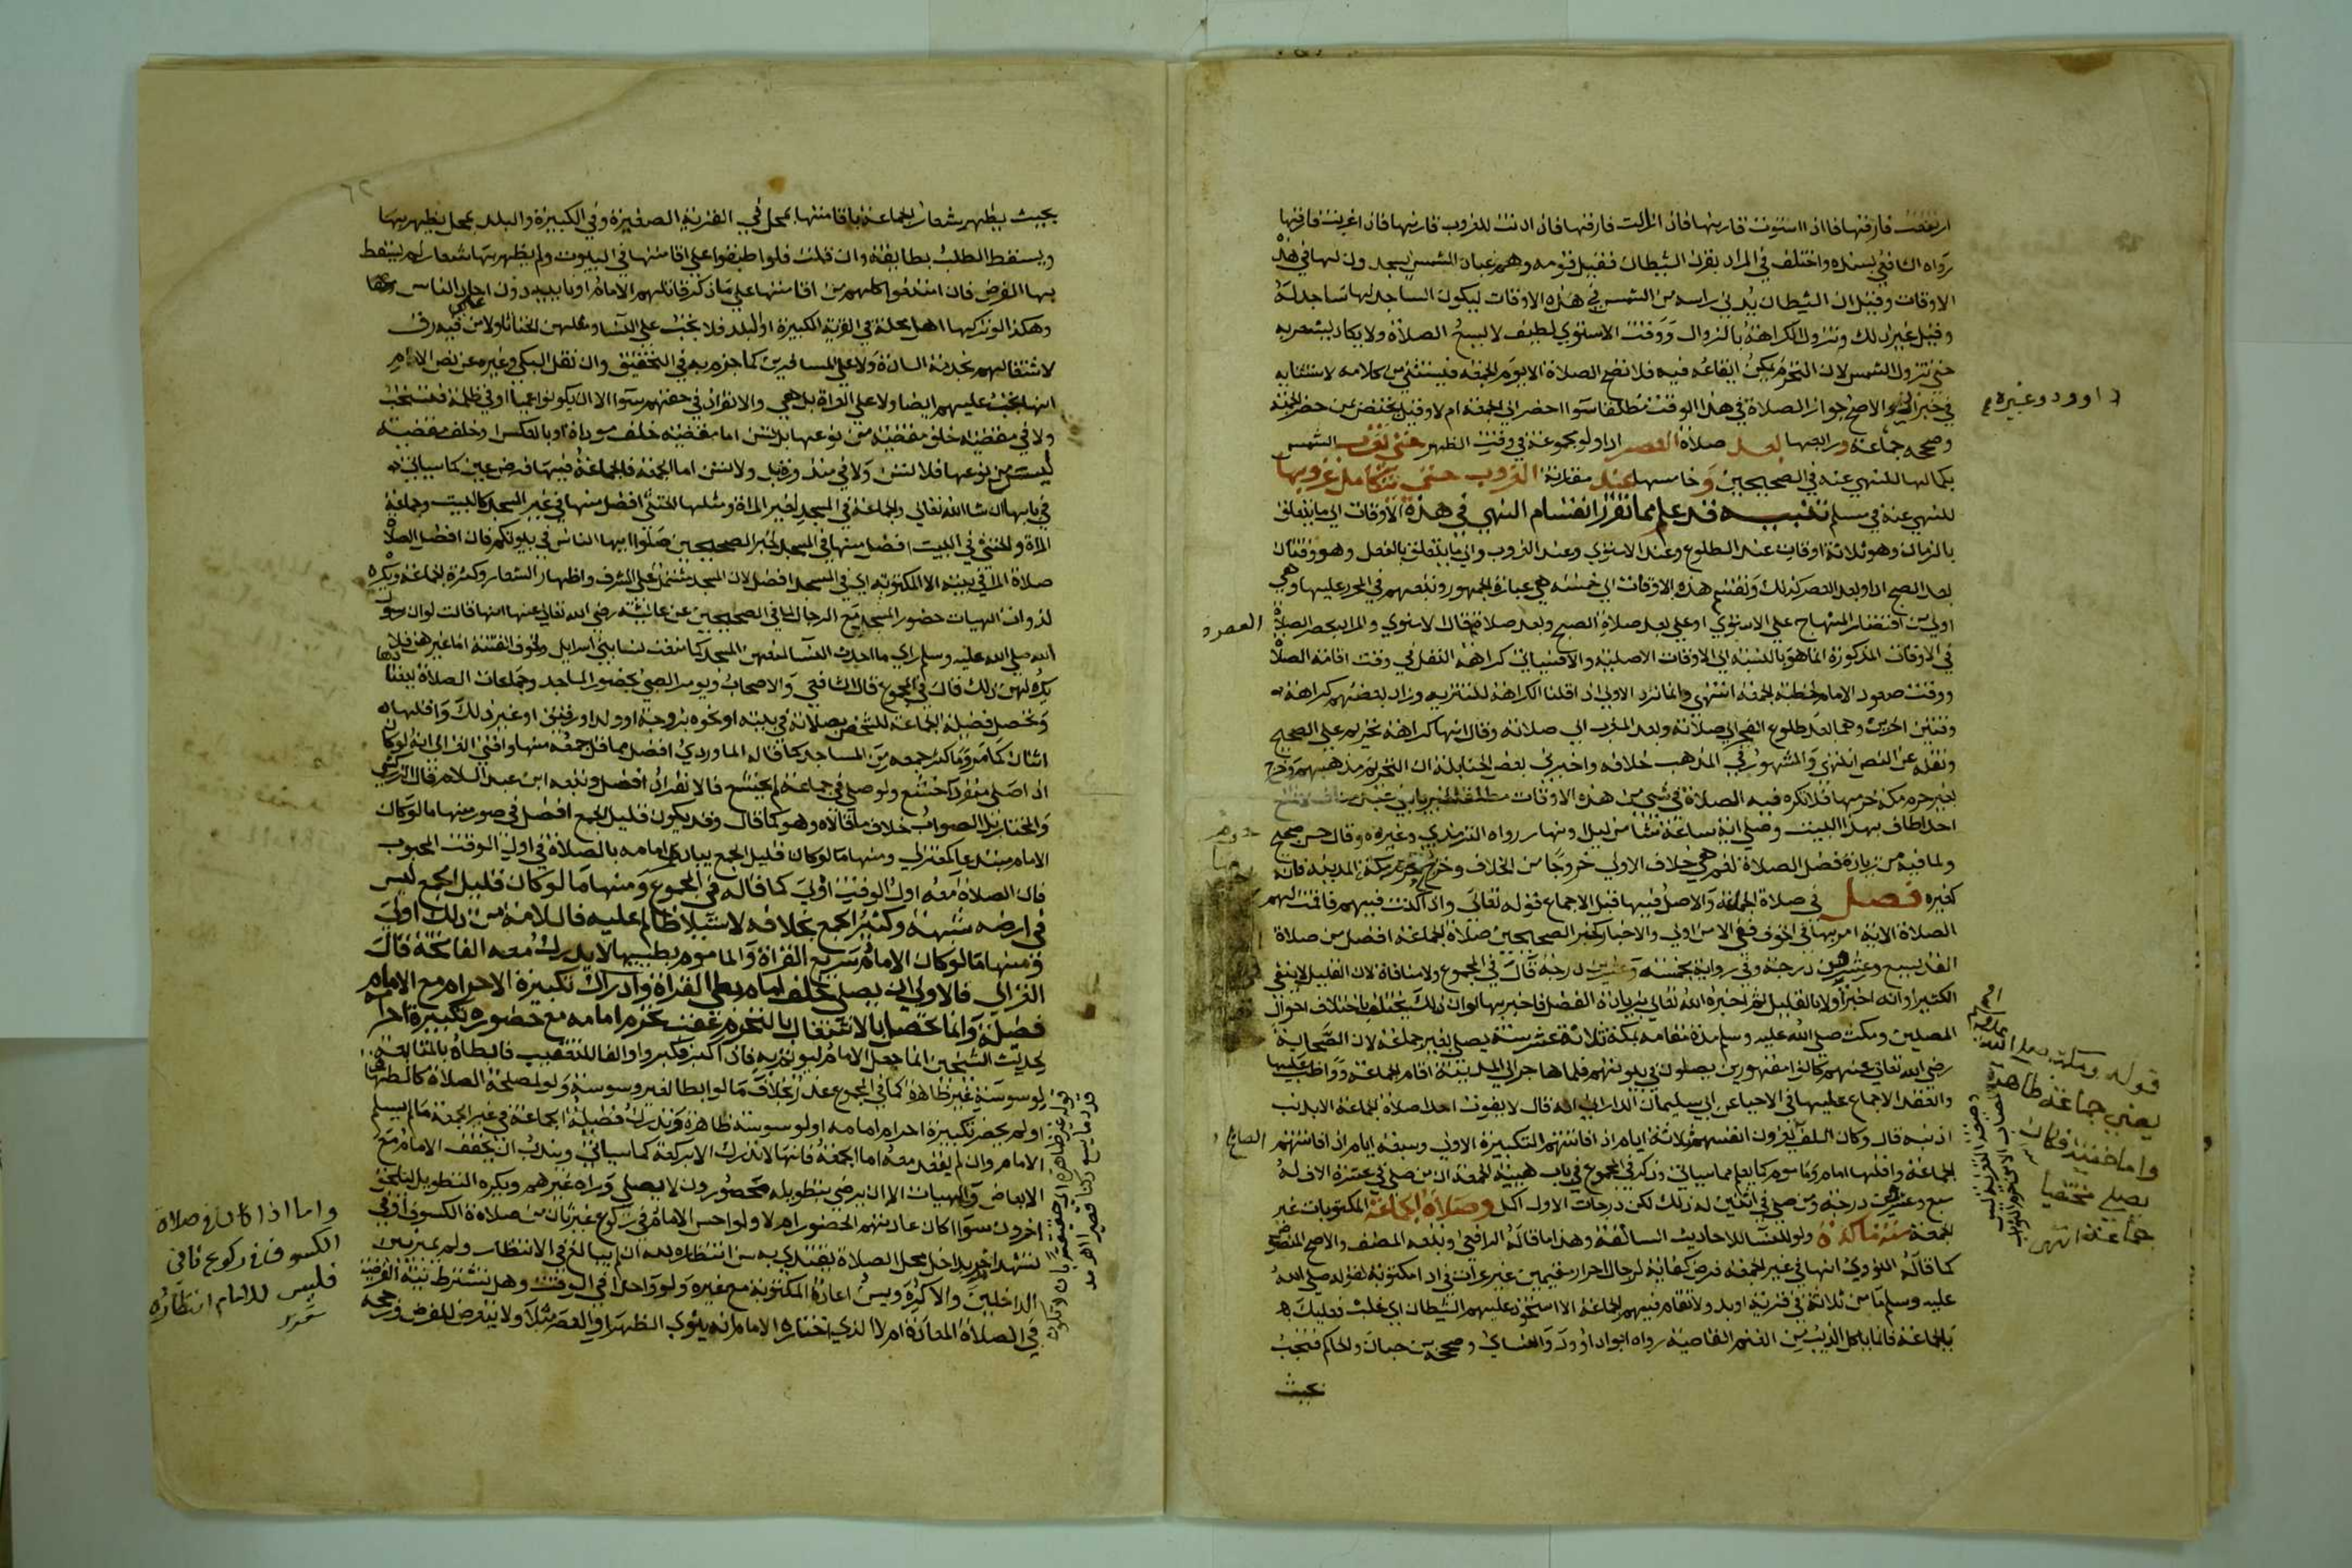 ارتفعت فارقها فاذا استوت قارنها فاذا زالت فارقها فاذا دنت للغروب قارنها فاذا غربت فارقها
رواه الشافعي بسنده واختلف في المراد بقرن الشيطان فقيل قومه وهم عباد الشمس يسجدون لها في هذه
الاوقات وقيل ان الشيطان يدني راسه من الشمس في هذه الاوقات ليكون الساجد لها ساجدا له
وقيل غير ذلك وتزول الكراهة بالزوال ووقت الاستوي لطيف لا يسع الصلاة ولا يكاد يشعر به
حتي تزول الشمس لان التحرم يمكن ايقاعه فيه فلا تصح الصلاة الا يوم الجمعة فيستثني من كلامه لاستثنايه
في خبر ابي داوود وغيره والاصح جواز الصلاة في هذا الوقت مطلقا سوا احضر الي الجمعة ام لا وقيل يختص بمن حضر الجمعة
وصححه جماعة ورابعها بعد صلاة العصر ادا ولو مجموعة في وقت الظهر حتي تغرب الشمس
بكمالها للنهي عنه في الصحيحين وخامسها عند مقارنة الغروب حتي يتكامل غروبها
للنهي عنه في مسلم تنبيه قد علم مما تقرر انقسام النهي في هذه الاوقات الي ما يتعلق
بالزمان وهو ثلاثة اوقات عند الطلوع وعند الاستوي وعند الغروب والي ما يتعلق بالفعل وهو وقتان
بعد الصبح ادا وبعد العصر كذلك وتقسيم هذه الاوقات الي خمسة هي عبارة الجمهور وتبعهم في المحرر عليها وهي
اولي من اقتصار المنهاج علي الاستوي وعلي بعد صلاة الصبح وبعد صلاة العصر قال الاسنوي والمراد بحصر الصلاة
في الاوقات المذكورة انما هو بالنسبة الي الاوقات الاصلية والا فسياتي كراهة التنفل في وقت اقامة الصلاة
ووقت صعود الامام لخطبة الجمعة انتهي وانما ترد الاولي اذا قلنا الكراهة للتنزيه وزاد بعضهم كراهة
وقتين اخرين وهما بعد طلوع الفجر الي صلاته وبعد المغرب الي صلاته وقال انها كراهة تحريم علي الصحيح
ونقله عن النص انتهي والمشهور في المذهب خلافه واخبرني بعض الحنابلة ان التحريم مذهبهم وخرج
بغير حرم مكة حرمها فلا تكره فيه الصلاة في شي من هذه الاوقات مطلقا لخبر يا بني عبد مناف لا تمنعوا
احدا طاف بهذا البيت وصلي اية ساعة شا من ليل او نهار رواه الترمذي وغيره وقال حسن صحيح
ولما فيه من زيادة فضل الصلاة نعم هي خلاف الاولي خروجا من الخلاف وخرج بحرم مكة حرم المدينة فانه
كغيره فصل في صلاة الجماعة والاصل فيها قبل الاجماع قوله تعالي واذا كنت فيهم فاقمت لهم
الصلاة الاية امر بها في الخوف ففي الامن اولي والاخبار كخبر الصحيحين صلاة الجماعة افضل من صلاة
الفذ بسبع وعشرين درجة وفي رواية بخمسة وعشرين درجة قال في المجموع ولا منافاة لان القليل لا ينفي
الكثير او انه اخبر اولا بالقليل ثم اخبره الله تعالي بزيادة الفضل فاخبر بها او ان ذلك يختلف باختلاف احوال
المصلين ومكث صلي الله عليه وسلم مدة مقامه بمكة ثلاثة عشر سنة يصلي بغير جماعة لان الصحابة
رضي الله تعالي عنهم كانوا مقهورين يصلون في بيوتهم فلما هاجر الي المدينة اقام الجماعة وواظب عليها
وانعقد الاجماع عليها وفي الاحيا عن ابي سليمان الداراني انه قال لا يفوت احدا صلاة الجماعة الا بذنب
اذنبه قال وكان السلف يعزون انفسهم ثلاثة ايام اذا فاتتهم التكبيرة الاولي وسبعة ايام اذا فاتتهم
الجماعة واقلها امام وماموم كما يعلم مما سياتي وذكر في المجموع في باب هيئة الجمعة ان من صلي في عشرة الاف له
سبع وعشرون درجة ومن صلي في اثنين له ذلك لكن درجات الاول اكمل وصلاة الجماعة في المكتوبات غير
الجمعة سنة ماكدة ولو للنسا للاحاديث السالفة وهذا ما قاله الرافعي وتبعه المصنف والاصح المنصوص
كما قاله النووي انها في غير الجمعة فرض كفاية لرجال احرار مقيمين غير عراة في ادا مكتوبة لقوله صلي الله
عليه وسلم ما من ثلاثة في قرية او بدو لا تقام فيهم الجماعة الا استحوذ عليهم الشيطان اي غلب فعليك
بالجماعة فانما ياكل الذيب من الغنم القاصية رواه ابو داوود والنساي وصححه بن حبان والحاكم فتجب
بحيث
داوود وغيره
العصر
قوله ومكث صلي الله عليه وسلم
يعني جماعة ظاهرا
واما خفية فكان
يصلي مختفيا
جماعة انتهي
بحيث يظهر شعار الجماعة باقامتها بمحل في القرية الصغيرة وفي الكبيرة والبلد بمحل يظهر بها
ويسقط الطلب بطايفة وان قلت فلو اطبقوا علي اقامتها في البيوت ولم يظهر بها شعار لم يسقط
بها الفرض فان امتنعوا كلهم من اقامتها علي ما ذكر قاتلهم الامام او نايبه دون احاد الناس
وهكذا لو تركها اهل محلة في القرية الكبيرة او البلد فلا تجب علي النسا ومثلهن الخناثا ولا من فيه رق
لاشتغالهم بخدمة السادة ولا علي المسافرين كما جزم به في التحقيق وان نقل السبكي وغيره عن نص الام
انها تجب عليهم ايضا ولا علي العراة بل هي والانفراد في حقهم سوا الا ان يكونوا عميا او في ظلمة فتستحب
ولا في مقضية خلف مقضية من نوعها بل تسن اما مقضية خلف موداة او بالعكس او خلف مقضية
ليست من نوعها فلا تسن ولا في منذورة بل ولا تسن اما الجمعة فالجماعة فيها فرض عين كما سياتي
في بابها ان شا الله تعالي والجماعة في المسجد لغير المراة ومثلها الخنثي افضل منها في غير المسجد كالبيت وجماعة
المراة والخنثي في البيت افضل منها في المسجد لخبر الصحيحين صلوا ايها الناس في بيوتكم فان افضل الصلاة
صلاة المر في بيته الا المكتوبة اي في المسجد افضل لان المسجد مشتمل علي الشرف واظهار الشعار وكثرة الجماعة ويكره
لذوات الهيات حضور المسجد مع الرجال لما في الصحيحين عن عائشة رضي الله تعالي عنها انها قالت لو ان رسول
الله صلي الله عليه وسلم راي ما احدث النسا لمنعهن المسجد كما منعت نسا بني اسرايل ولخوف الفتنة اما غيرهن فلا
يكره لهن ذلك قال في المجموع قال الشافعي والاصحاب ويومر الصبي بحضور المساجد وجماعات الصلاة ليعتادها
وتحصل فضيلة الجماعة للشخص بصلاته في بيته او نحوه بزوجة او ولد او رفيق او غير ذلك واقلها
اثنان كما مر وما كثر جمعه من المساجد كما قاله الماوردي افضل مما قل جمعه منها وافتي الغزالي انه لو كان
اذا صلي منفردا خشع ولو صلي في جماعة لم يخشع فالانفراد افضل وتبعه ابن عبد السلام قال الزركشي
والمختار بل الصواب خلاف ما قالاه وهو كما قال وقد يكون قليل الجمع افضل في صور منها ما لو كان
الامام مبتدعا كمعتزلي ومنها ما لو كان قليل الجمع يبادر امامه بالصلاة في اول الوقت المحبوب
فان الصلاة معه اول الوقت اولي كما قاله في المجموع ومنها ما لو كان قليل الجمع ليس
في ارضه شبهة وكثير الجمع بخلافه لاستيلا ظالم عليه فالسلامة من ذلك اولي
ومنها ما لو كان الامام سريع القراة والماموم بطييها لا يدرك معه الفاتحة قال
الغزالي فالاولي ان يصلي خلف امام بطي القراة وادراك تكبيرة الاحرام مع الامام
فضيلة وانما تحصل بالاشتغال بالتحرم عقب تحرم امامه مع حضوره تكبيرة احرامه
لحديث الشيخين انما جعل الامام ليوتم به فاذا كبر فكبروا والفا للتعقيب فابطاه بالمتابعة
لوسوسة غير ظاهرة كما في المجموع عذر بخلاف ما لو ابطا لغير وسوسة ولو لمصلحة الصلاة كالطهارة
او لم يحضر تكبيرة احرام امامه او لوسوسة ظاهرة وتدرك فضيلة الجماعة في غير الجمعة ما لم يسلم
الامام وان لم يقعد معه اما الجمعة فانها لا تدرك الا بركعة كما سياتي ويندب ان يخفف الامام مع
الابعاض والهيات الا ان يرضي بتطويله محصورون لا يصلي وراه غيرهم ويكره التطويل ليلحق
اخرون سوا اكان عادتهم الحضور ام لا ولو احس الامام في ركوع غير ثان من صلاة الكسوف او في
تشهد اخير بداخل محل الصلاة يقتدي به سن انتظاره لله ان لم يبالغ في الانتظار ولم يميز بين
الداخلين والا كره ويسن اعادة المكتوبة مع غيره ولو واحدا في الوقت وهل تشترط نية الفرضية
في الصلاة المعادة ام لا الذي اختاره الامام انه ينوي الظهر او العصر مثلا ولا يتعرض للفرض ورجحه
واما اذا كان في صلاة
الكسوف في ركوع ثاني
فليس للامام انتظاره